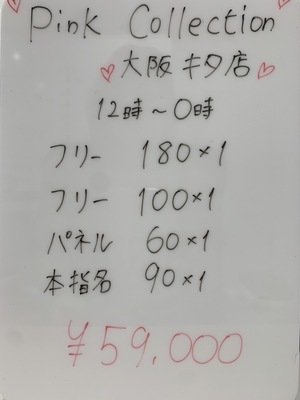 Pink Collection
大阪キタ店
12時～0時
フリー 180×1
フリー 100×1
パネル 60×1
本指名 90×1
¥59,000